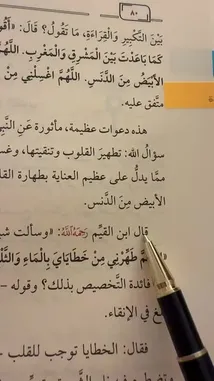 ٨٠
بَيْنَ التَّكْبِيرِ وَالْقِرَاءَةِ، مَا تَقُولُ؟ قَالَ: «أَقُو
كَمَا بَاعَدْتَ بَيْنَ الْمَشْرِقِ وَالْمَغْرِبِ. اللَّهُمَّ
الْأَبْيَضُ مِنَ الدَّنَسِ. اللَّهُمَّ اغْسِلْنِي مِنْ
متَّفق عليه.
هذه دعوات عظيمة، مأثورة عن النَّبِيِّ
سؤالُ الله: تطهيرَ القلوب وتنقيتها، وغس
ممَّا يدلُّ على عظيم العناية بطهارة القل
الأبيض مِنَ الدَّنس.
قال ابن القيِّم رَحِمَهُ اللَّهُ: «وسألت شي
طَهِّرْنِي مِنْ خَطَايَايَ بِالْمَاءِ وَالثَّلْ
فائدة التَّخصيص بذلك؟ وقوله –
غ في الإنقاء.
فقال: الخطايا توجب للقلب